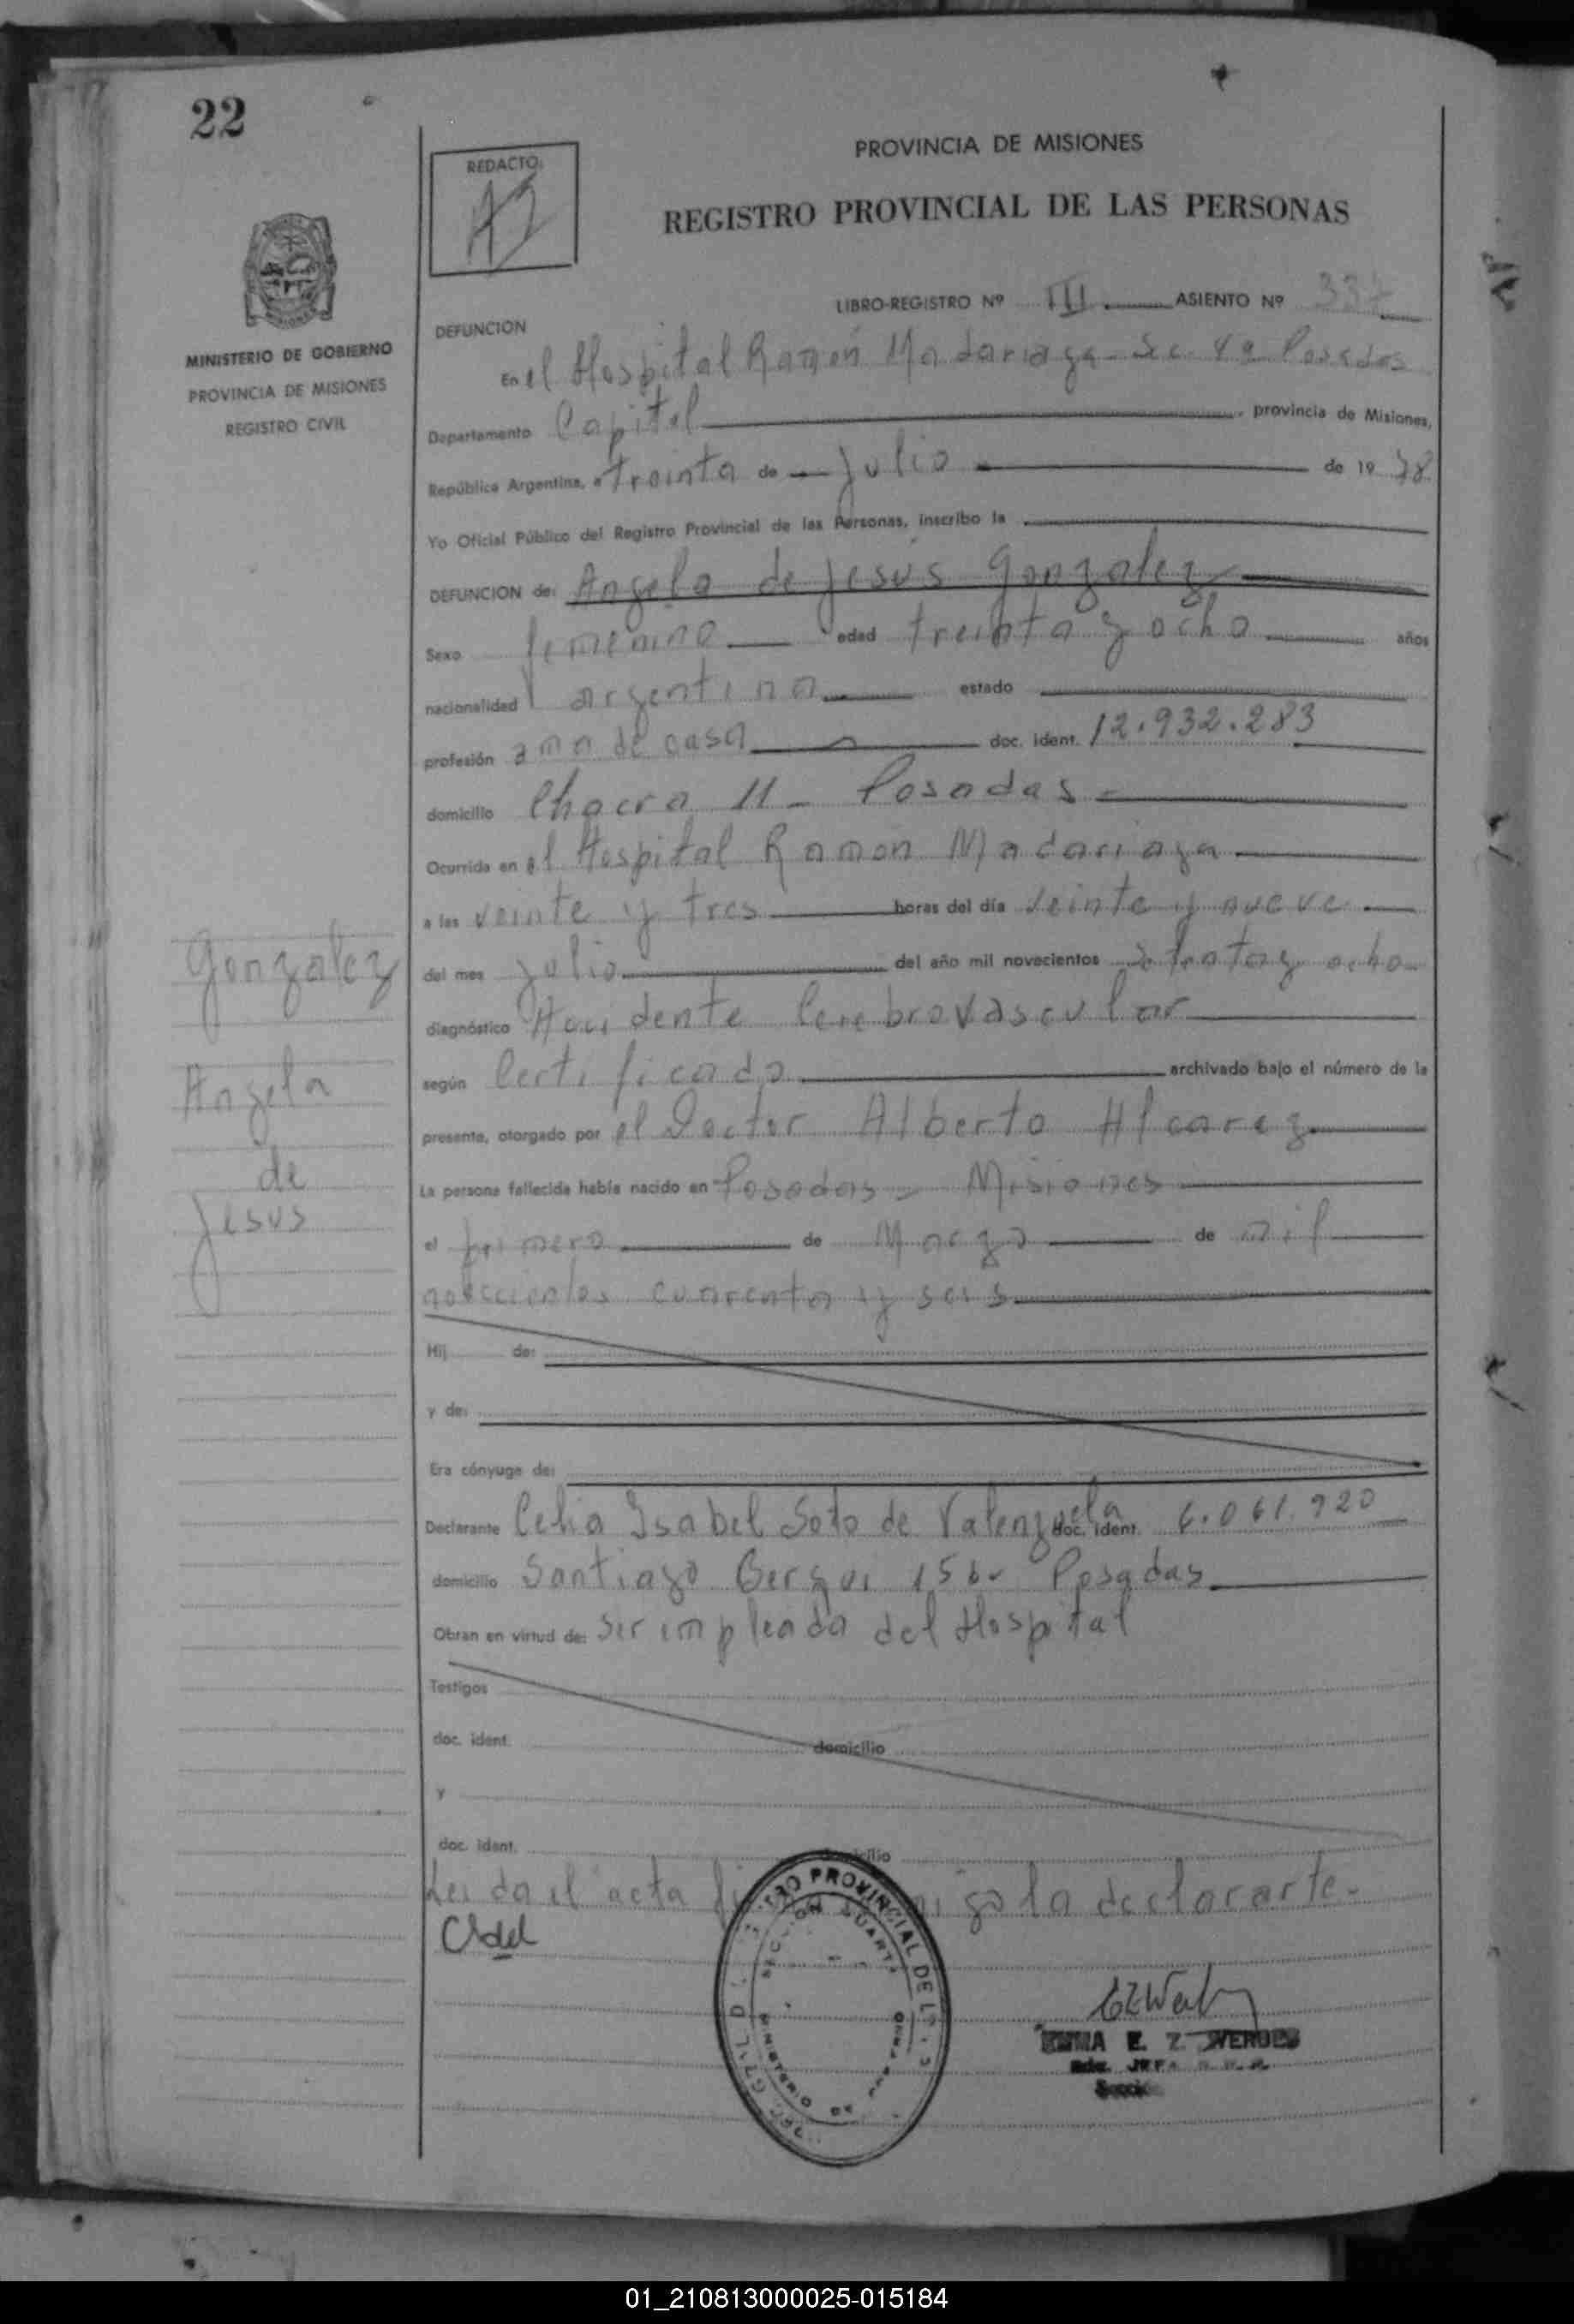 22
REDACTO:
PROVINCIA DE MISIONES
REGISTRO PROVINCIAL DE LAS PERSONAS
LIBRO-REGISTRO Nº III ASIENTO Nº 337
MINISTERIO DE GOBIERNO
PROVINCIA DE MISIONES
REGISTRO CIVIL
DEFUNCION
En el Hospital Ramón Madariaga - Sec. 4a Posadas
Departamento Capital, provincia de Misiones,
República Argentina, a treinta de Julio de 1978
Yo Oficial Público del Registro Provincial de las Personas, inscribo la
DEFUNCION de: Angela de Jesús Gonzalez
Sexo femenino edad treinta y ocho años
nacionalidad argentina estado
profesión ama de casa doc. ident. 12.932.283
domicilio Chacra 11 - Posadas -
Ocurrida en el Hospital Ramon Madariaga
a las veinte y tres horas del día veinte y nueve
del mes Julio del año mil novecientos setenta y ocho
diagnóstico Accidente Cerebrovascular
según Certificado archivado bajo el número de la
presente, otorgado por el Doctor Alberto Alcarez
La persona fallecida había nacido en Posadas - Misiones
el primero de Marzo de mil
novecientos cuarenta y seis
Gonzalez
Angela
de
Jesus
Hij de:
y de:
Era cónyuge de:
Declarante Celia Isabel Soto de Valenzuela doc. ident. 6.061.920
domicilio Santiago Derqui 156 - Posadas
Obran en virtud de: ser empleada del Hospital
Testigos
doc. ident. domicilio
y
doc. ident. domicilio
Leida el acta la declarante.
REGISTRO PROVINCIAL DE LAS
SECCION CUARTA
MINISTERIO DE
EMMA E. Z. WERDES